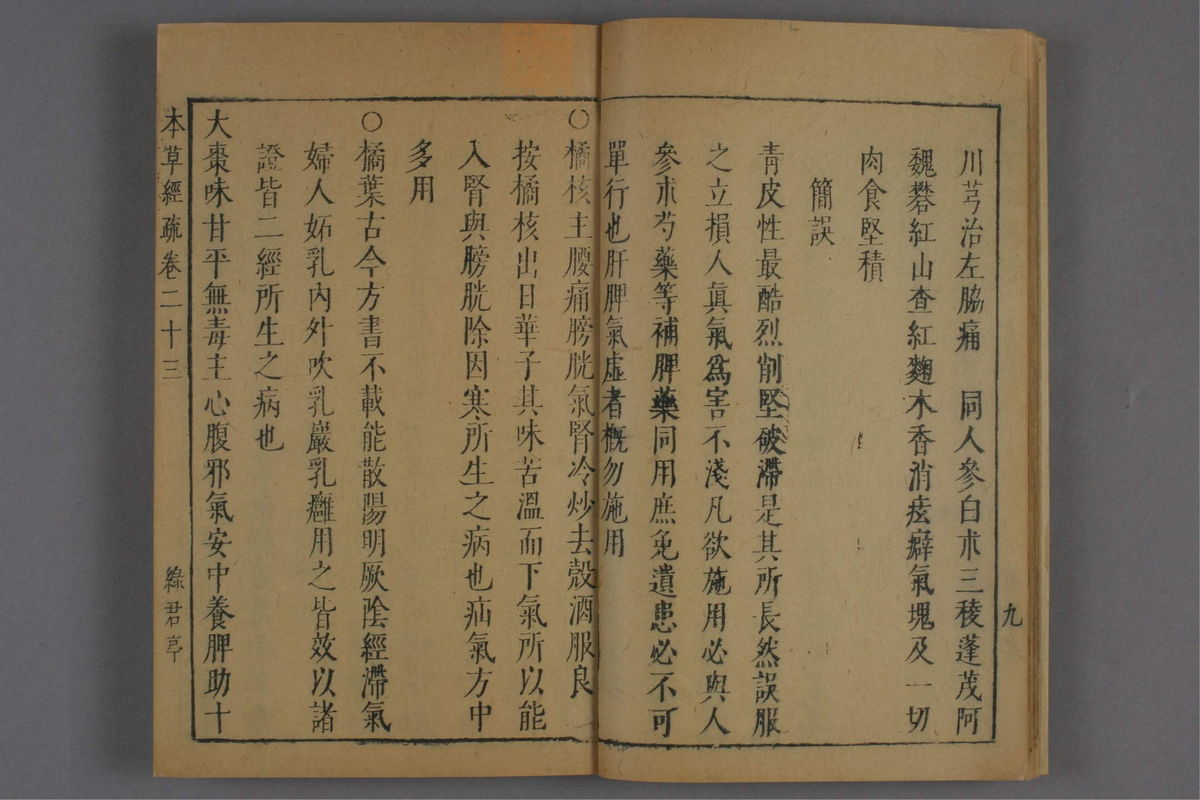 九
川芎治左脇痛　同人參白朮三稜蓬茂阿
魏礬紅山查紅麴木香消痃癖氣塊及一切
肉食堅積
簡誤
青皮性最酷烈削堅破滯是其所長然誤服
之立損人眞氣爲害不淺凡欲施用必與人
參朮芍藥等補脾藥同用庶免遺患必不可
單行也肝脾氣虛者槪勿施用
○橘核主腰痛膀胱氣腎冷炒去殼酒服良
按橘核出日華子其味苦溫而下氣所以能
入腎與膀胱除因寒所生之病也疝氣方中
多用
○橘葉古今方書不載能散陽明厥陰經滯氣
婦人妬乳內外吹乳巖乳癰用之皆效以諸
證皆二經所生之病也
大棗味甘平無毒主心腹邪氣安中養脾助十
本草經疏卷二十三
綠君亭